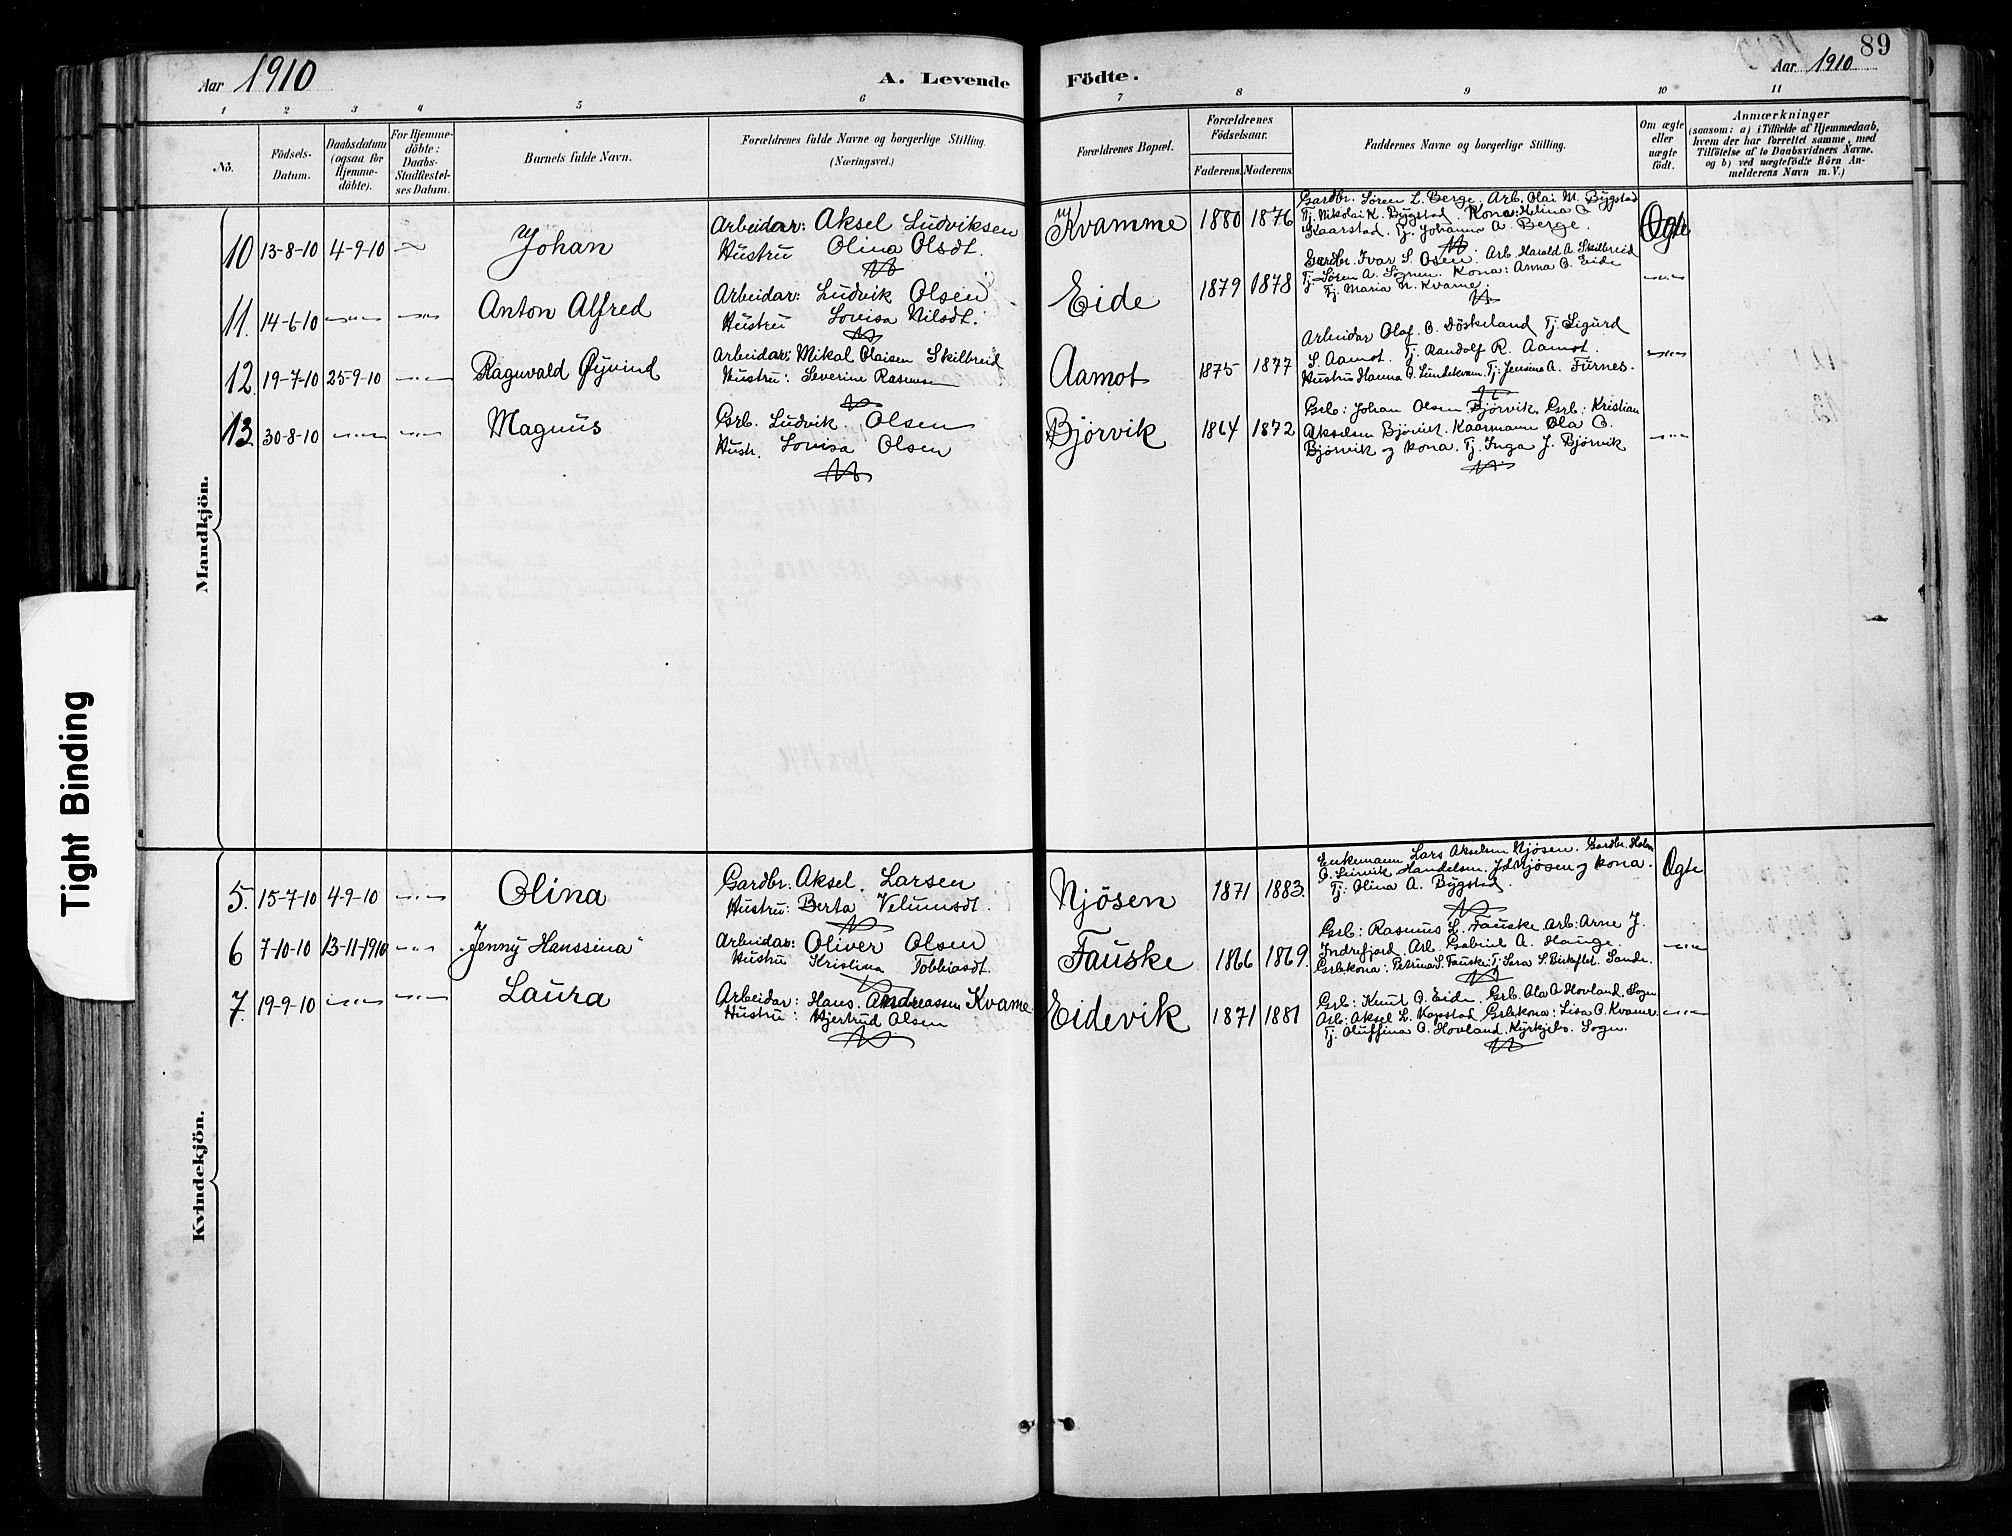 89
Aar 1910
A. Levende Födte.
Aar 1910
1 2 3 4 5 6 7 8 9 10 11
Nö.
Födsels-Datum.
Daabsdatum (ogsaa for Hjemme-döbte).
For Hjemme-döbte: Daabs-Stadfæstel-ses Datum.
Barnets fulde Navn.
Forældrenes fulde Navne og borgerlige Stilling. (Næringsvei.)
Forældrenes Bopæl.
Forældrenes Födselsaar.
Faderens. Moderens.
Faddernes Navne og borgerlige Stilling.
Om ægte eller uægte födt.
Anmærkninger
(saasom: a) i Tilfælde af Hjemmedaab, hvem der har forrettet samme, med Tilföielse af to Daabsvidners Navne. og b) ved uægtefödte Börn An-melderens Navn m. V.)
Mandkjön.
10 13-8-10 4-9-10 Johan
Arbeidar: Aksel Ludviksen
Hustru Olina Olsdt.
Kvamme 1880 1876
Gardbr. Søren L. Berge. Arb. Olai M. Bygstad
Tj. Nikolai K. Bygstad. Kona: Helina O
Kaarstad. Tj. Johanna A. Berge.
Ogte
11. 14-6-10 -"- -"- Anton Alfred
Arbeidar: Ludvik Olsen
Hustru Lovisa Nilsdt.
Eide 1879 1878
Gardbr. Ivar S. Osen. Arb. Harald A. Skilbreid
Tj. Søren A. Sognen. Kona: Anna O. Eide
Tj. Maria N. Kvame.
-"-
12. 19-7-10 25-9-10 -"- Ragnvald Øyvind
Arbeidar: Mikal Olaisen Skilbreid
Hustru: Severine Rasmusen
Aamot 1875 1877
Arbeidar Olaf O. Döskeland Tj. Sigurd
S. Aamot. Tj. Randolf R. Aamot.
Hustru Hanna O. Lundekvam. Tj: Jensina A. Furnes.
-"-
13. 30-8-10 -"- -"- Magnus
Grb. Ludvik Olsen
Hustr. Lovisa Olsen
Bjørvik 1864 1872
Grb: Johan Olsen Bjørvik. Grb: Kristian
Akselsen Bjørvik. Kaarmann Ola O.
Bjørvik og kona. Tj. Inga J. Bjørvik
-"-
Kvindekjön.
5. 15-7-10 4-9-10 -"- Olina
Gardbr. Aksel Larsen
Hustru: Berta Velumsdt.
Njøsen 1871 1883.
Enkemann Lars Akselsen Njøsen. Gardbr. Holm
O. Leirvik Handelsm. J.L. Njøsen og kona.
Tj: Olina A. Bygstad.
Ogte
6 7-10-10 13-11-1910 -"- "Jenny Hanssina"
Arbeidar: Oliver Olsen
Hustru Kristina Tobbiasdt.
Fauske 1866 1869
Grb: Rasmus L. Fauske Arb: Arne J.
Indrefjord. Arb. Gabriel A. Hauge.
Grbkona: Petrina S. Fauske. Tj. Sara S. Sande
-"-
7. 19-9-10 -"- -"- Laura
Arbeidar: Hans. Andreassen Kvame
Hustru: Hjertrud Olsen
Eidevik 1871 1881
Grb: Knut O. Eide. Grb. Ola O Hovland. Sogn
Arb: Aksel L. Kagstad. Grbkona: Lisa O. Kvame
Tj. Oluffina O. Hovland. Kyrkjebø. Sogn.
-"-
Tight Binding